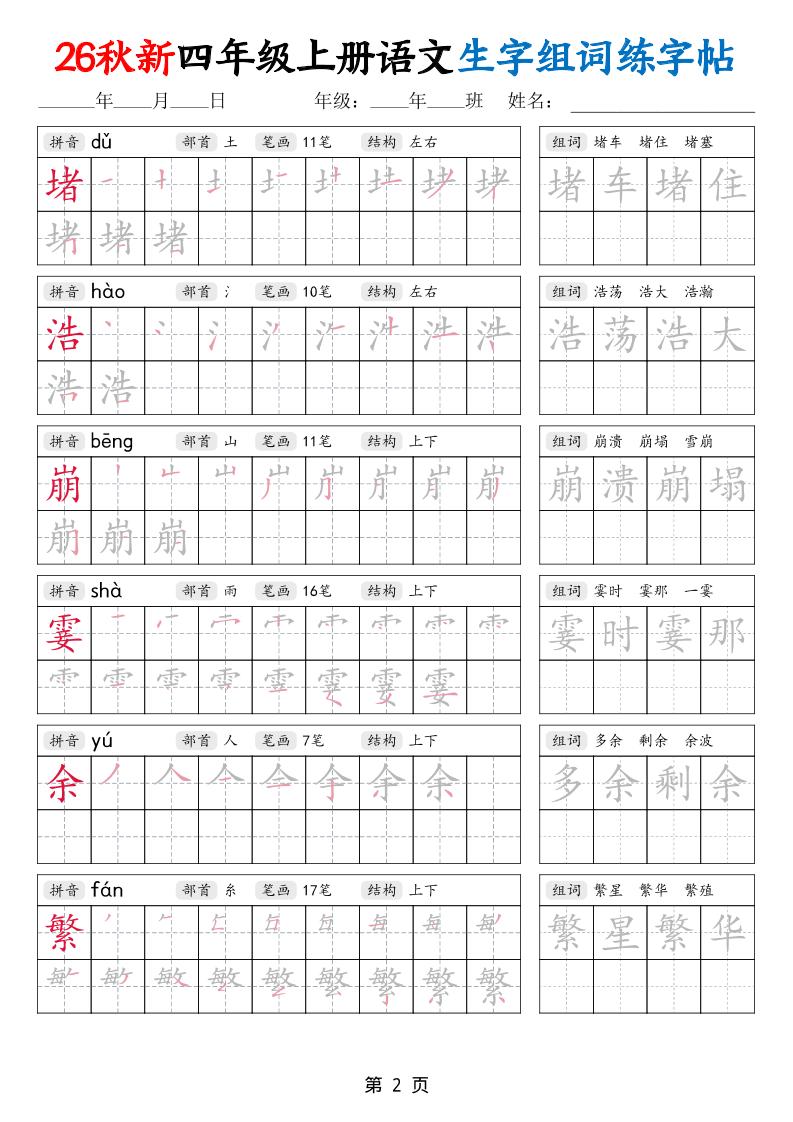 26秋新四年级上册语文生字组词练字帖
______年____月____日 年级：____年____班 姓名：____________________
拼音 dǔ 部首 土 笔画 11笔 结构 左右
组词 堵车 堵住 堵塞
堵
堵车堵住
拼音 hào 部首 氵 笔画 10笔 结构 左右
组词 浩荡 浩大 浩瀚
浩
浩荡浩大
拼音 bēng 部首 山 笔画 11笔 结构 上下
组词 崩溃 崩塌 雪崩
崩
崩溃崩塌
拼音 shà 部首 雨 笔画 16笔 结构 上下
组词 霎时 霎那 一霎
霎
霎时霎那
拼音 yú 部首 人 笔画 7笔 结构 上下
组词 多余 剩余 余波
余
多余剩余
拼音 fán 部首 糸 笔画 17笔 结构 上下
组词 繁星 繁华 繁殖
繁
繁星繁华
第 2 页